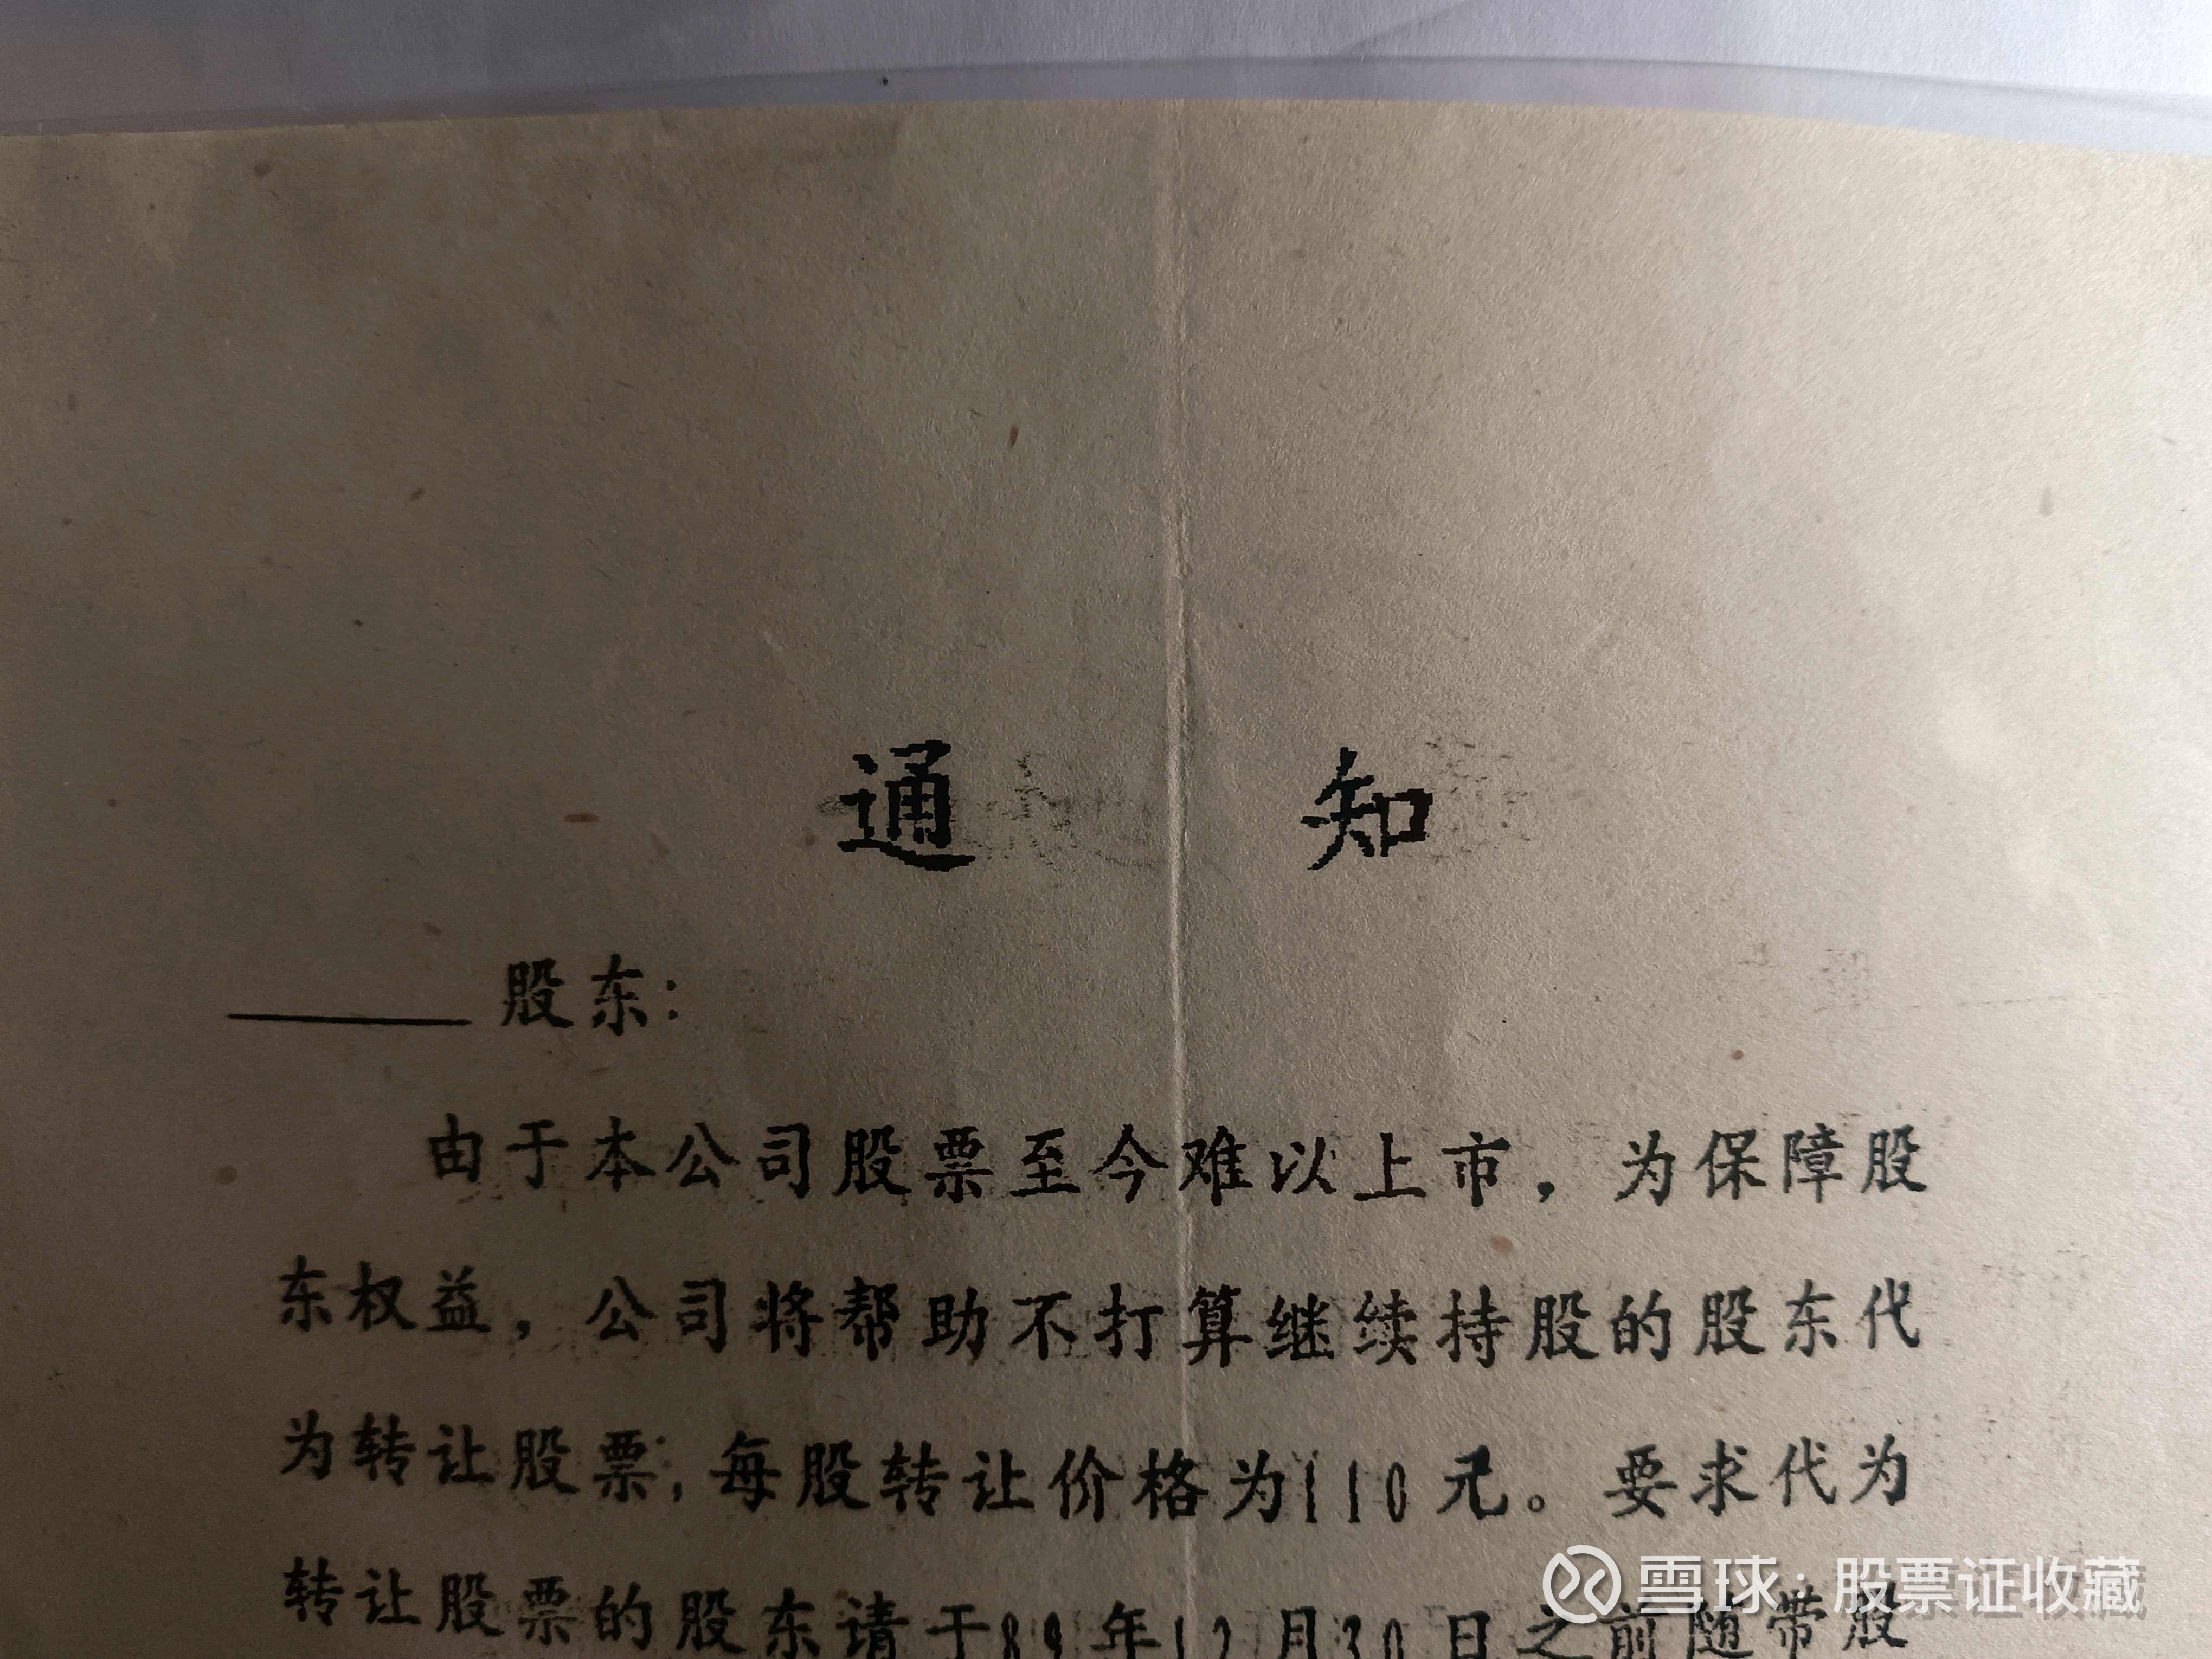 通 知
股东：
由于本公司股票至今难以上市，为保障股
东权益，公司将帮助不打算继续持股的股东代
为转让股票，每股转让价格为110元。要求代为
转让股票的股东请于89年12月30日之前随带股
雪球：股票证收藏